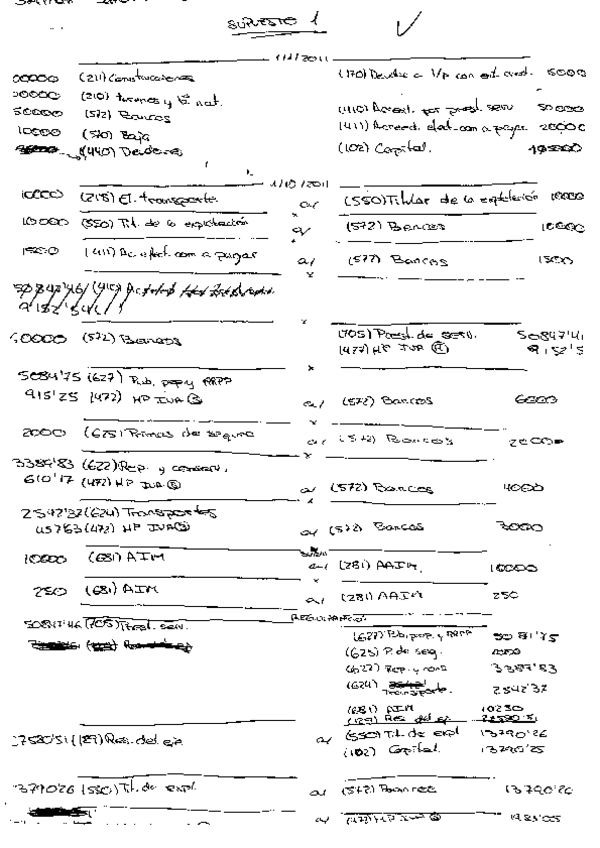 SUPUESTO 1
1/1/2011
(211) Construcciones (170) Deudas a l/p con ent. cred. 5000
(210) terrenos y b. nat.
50000 (572) Bancos (410) Acreed. por prest. serv 50000
10000 (570) Caja (411) Acreed. efect. com a pagar 20000
(440) Deudores (102) Capital.
1/10/2011
10000 (218) El. transporte a/ (550) Titular de la explotación 10000
10000 (550) Tit. de la explotación a/ (572) Bancos 10000
1500 (411) Ac. efect. com a pagar a/ (572) Bancos 1500
60000 (572) Bancos (705) Prest. de serv. 50847'4
(477) HP IVA (R) 9152'5
5084'75 (627) Pub, prop y RRPP
915'25 (472) HP IVA (S) a/ (572) Bancos 6000
2000 (625) Primas de seguro a/ (572) Bancos 2000
3389'83 (622) Rep. y conserv.
610'17 (472) HP IVA (S) a/ (572) Bancos 4000
2542'37 (624) Transportes
457'63 (472) HP IVA (S) a/ (572) Bancos 3000
10000 (681) AIM a/ (281) AAIM 10000
250 (681) AIM a/ (281) AAIM 250
REGULARIZACIÓN
50847'46 (705) Prest. serv.
(627) Pub, prop. y RRPP 5081'75
(625) P. de seg.
(622) Rep. y cons 3389'83
(624) Transporte. 2542'37
(681) AIM 10250
(129) Res. del ej. 27580'51
27580'51 (129) Res. del ej. a/ (550) Tit. de expl 13790'26
(102) Capital. 13790'25
13790'26 (550) Tit. de expl. a/ (572) Bancos 13790'26
a/ (472) HP IVA (S) 1983'05